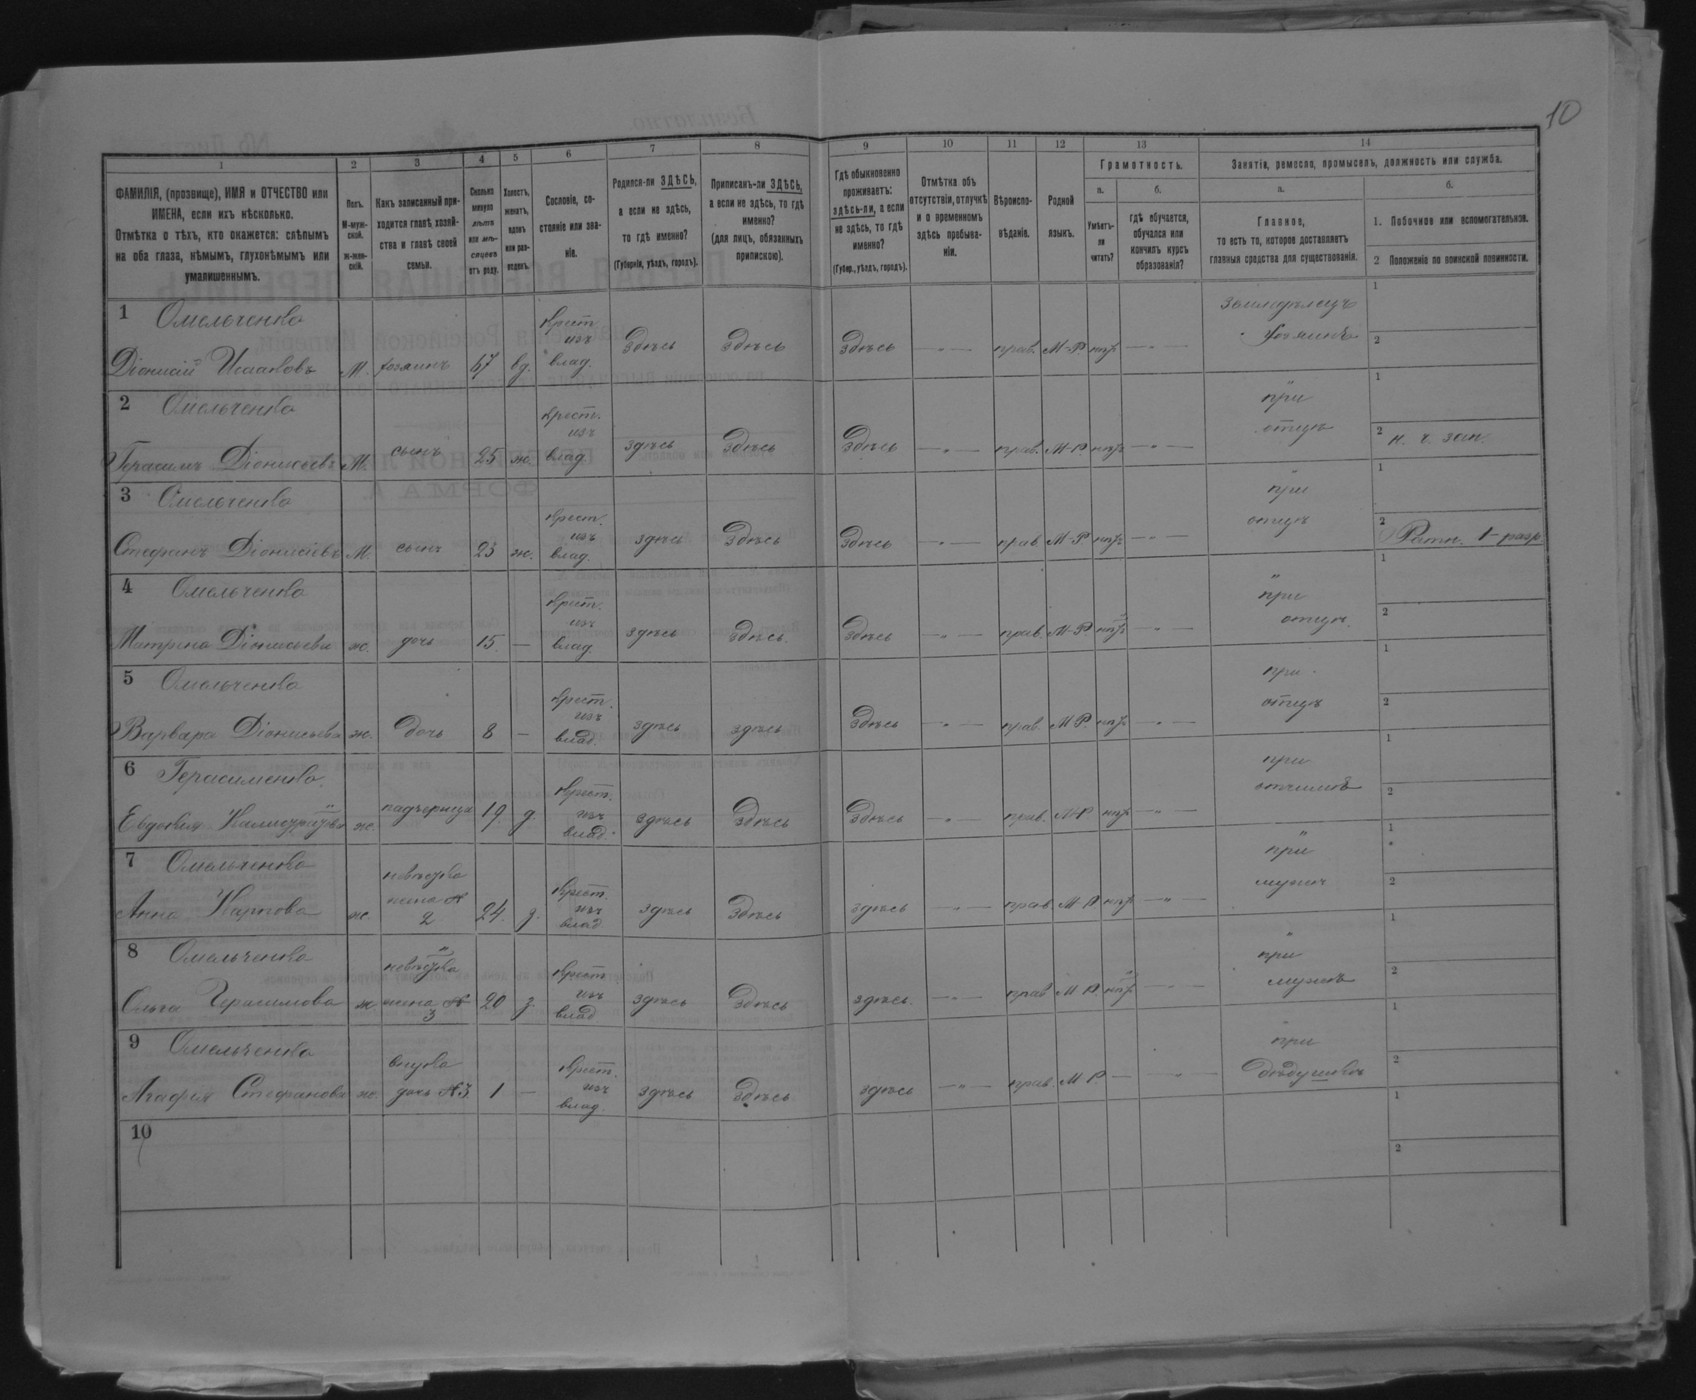 10
1
2
3
4
5
6
7
8
9
10
11
12
13
14
ФАМИЛІЯ, (прозвище), ИМЯ и ОТЧЕСТВО или
ИМЕНА, если ихъ нѣсколько.
Отмѣтка о тѣхъ, кто окажется: слѣпымъ
на оба глаза, нѣмымъ, глухонѣмымъ или
умалишеннымъ.
Полъ.
М-муж-
ской.
ж-жен-
скій.
Какъ записанный при-
ходится главѣ хозяй-
ства и главѣ своей
семьи.
Сколько
минуло
лѣтъ
или мѣ-
сяцевъ
отъ роду.
Холостъ,
женатъ,
вдовъ
или раз-
веденъ.
Сословіе, со-
стояніе или зва-
ніе.
Родился-ли ЗДѢСЬ,
а если не здѣсь,
то гдѣ именно?
(Губернія, уѣздъ, городъ).
Приписанъ-ли ЗДѢСЬ,
а если не здѣсь, то гдѣ
именно?
(для лицъ, обязанныхъ
припискою).
Гдѣ обыкновенно
проживаетъ:
здѣсь-ли, а если
не здѣсь, то гдѣ
именно?
(Губер., уѣздъ, городъ).
Отмѣтка объ
отсутствіи, отлучкѣ
и о временномъ
здѣсь пребыва-
ніи.
Вѣроиспо-
вѣданіе.
Родной
языкъ.
Грамотность.
а.
Умѣетъ-
ли
читать?
б.
гдѣ обучается,
обучался или
кончилъ курсъ
образованія?
Занятіе, ремесло, промыселъ, должность или служба.
а.
Главное,
то есть то, которое доставляетъ
главныя средства для существованія.
б.
1. Побочное или вспомогательное.
2 Положеніе по воинской повинности.
1 Омельченко
Діонисій Исааковъ М. хозяинъ 47 вд. крест. изъ влад. Здѣсь Здѣсь Здѣсь —„— прав. М-Р нѣтъ —„— земледѣлецъ хозяинъ 1 2
2 Омельченко
Герасимъ Діонисіевъ М. сынъ 25 ж. крест. изъ влад. здѣсь Здѣсь Здѣсь —„— прав. М-Р нѣтъ —„— при отцѣ 1 2 н. ч. зап.
3 Омельченко
Стефанъ Діонисіевъ М. сынъ 23 ж. крест. изъ влад. здѣсь Здѣсь Здѣсь —„— прав М-Р нѣтъ —„— при отцѣ 1 2 Ратн. 1 разр
4 Омельченко
Матрена Діонисьева ж. дочь 15. — крест. изъ влад. здѣсь Здѣсь. Здѣсь —„— прав. М-Р нѣтъ —„— при отцѣ. 1 2
5 Омельченко
Варвара Діонисьева ж. дочь 8 — крест. изъ влад. здѣсь здѣсь Здѣсь —„— прав М Р. нѣтъ —„— при отцѣ 1 2
6 Герасименко.
Евдокия ж. падчерица 19. д. крест. изъ влад. здѣсь Здѣсь Здѣсь —„— прав. М-Р нѣтъ —„— при отчимѣ 1 2
7 Омельченко
Анна Карпова ж. невѣстка жена № 2 24. з. крест. изъ влад здѣсь Здѣсь здѣсь —„— прав М Р нѣтъ —„— при мужѣ 1 2
8 Омельченко
Ольга Герасимова ж. невѣстка жена № 3 20 з. крест. изъ влад здѣсь Здѣсь здѣсь. —„— прав М Р. нѣтъ —„— при мужѣ 1 2
9 Омельченко
Агафия Стефанова ж. внучка дочь №3. 1 — крест. изъ влад. здѣсь Здѣсь здѣсь —„— прав. М Р. — —„— при дѣдушкѣ 1 2
10 1 2